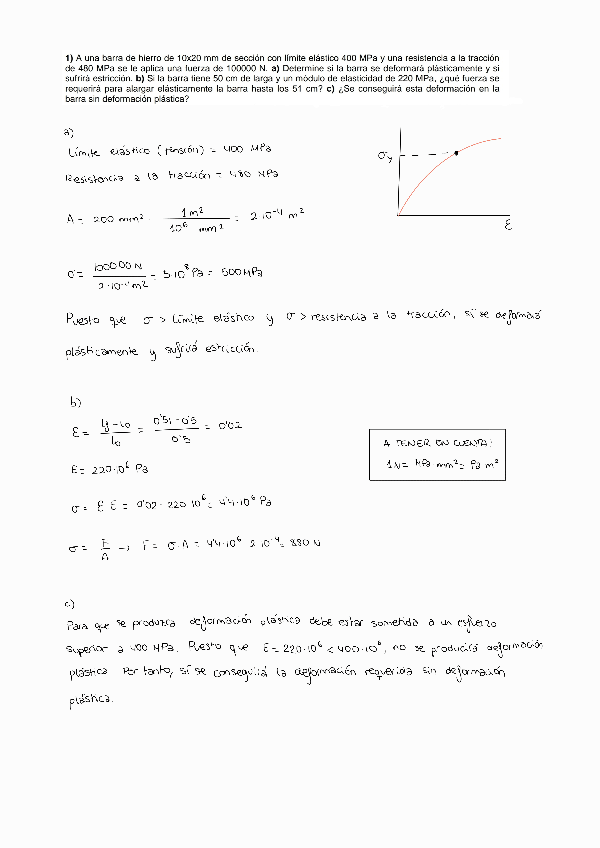 1) A una barra de hierro de 10x20 mm de sección con límite elástico 400 MPa y una resistencia a la tracción
de 480 MPa se le aplica una fuerza de 100000 N. a) Determine si la barra se deformará plásticamente y si
sufrirá estricción. b) Si la barra tiene 50 cm de larga y un módulo de elasticidad de 220 MPa, ¿qué fuerza se
requerirá para alargar elásticamente la barra hasta los 51 cm? c) ¿Se conseguirá esta deformación en la
barra sin deformación plástica?
a)
Límite elástico (tensión) = 400 MPa
Resistencia a la tracción = 480 MPa
σy
ε
A = 200 mm² · 1 m² / 10⁶ mm² = 2·10⁻⁴ m²
σ = 100000 N / 2·10⁻⁴ m² = 5·10⁸ Pa = 500 MPa
Puesto que σ > Límite elástico y σ > resistencia a la tracción, sí se deformará
plásticamente y sufrirá estricción.
b)
ε = (lf - lo) / lo = (0'51 - 0'5) / 0'5 = 0'02
E = 220·10⁶ Pa
σ = E ε = 0'02 · 220·10⁶ = 4'4·10⁶ Pa
σ = F / A → F = σ·A = 4'4·10⁶ · 2·10⁻⁴ = 880 N
A TENER EN CUENTA:
1 N = MPa mm² = Pa m²
c)
Para que se produzca deformación plástica debe estar sometida a un esfuerzo
superior a 400 MPa. Puesto que E = 220·10⁶ < 400·10⁶, no se producirá deformación
plástica. Por tanto, sí se conseguirá la deformación requerida sin deformación
plástica.